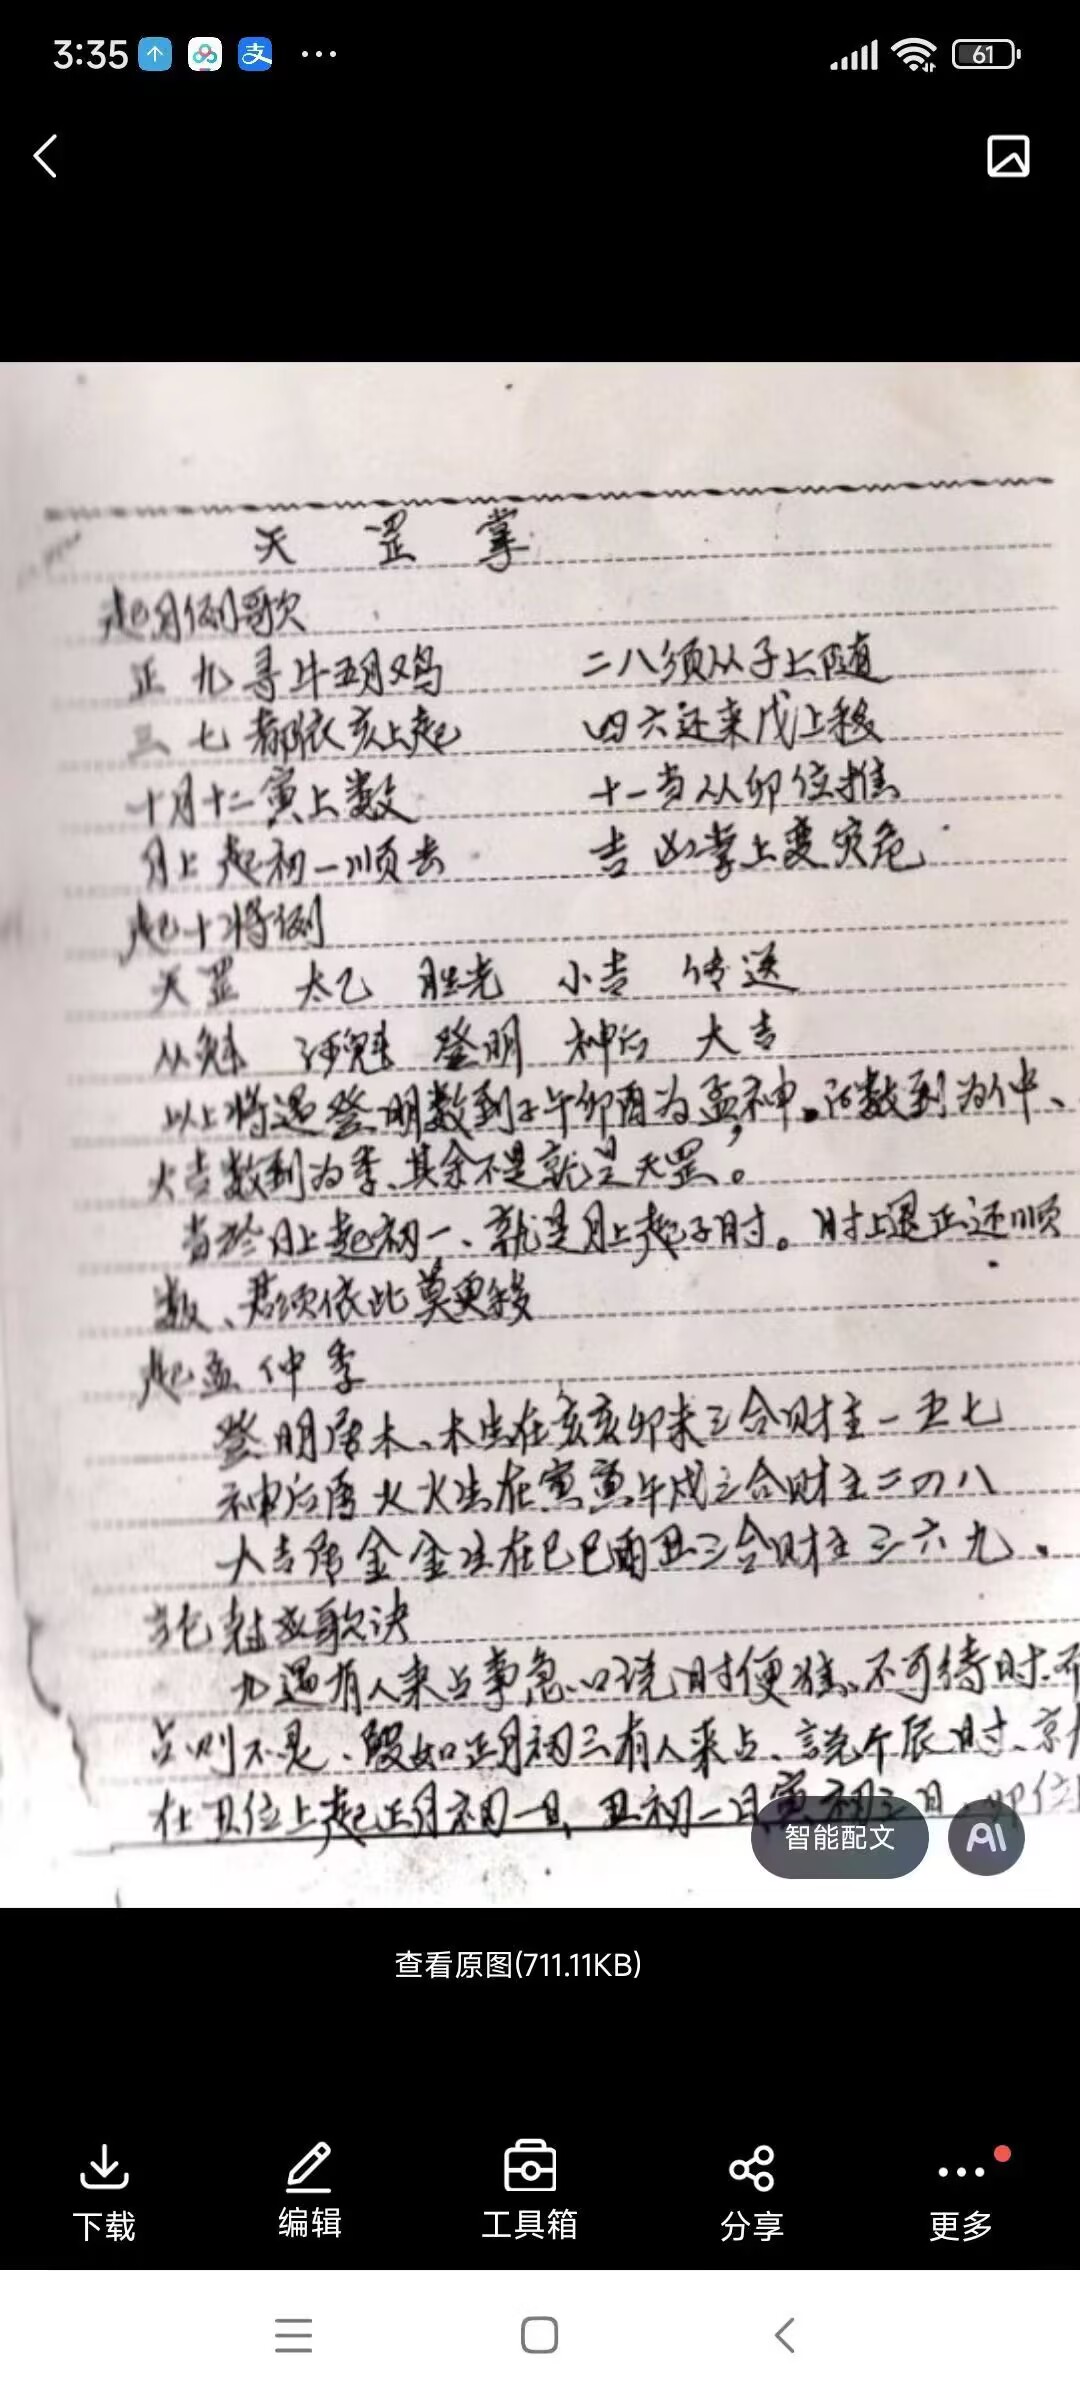 3:35
61
天罡掌
起月例歌
正九寻牛五月鸡 二八须从子上随
三七都依亥上起 四六还来戌上移
十月十二寅上数 十一当从卯位推
月上起初一顺去 吉凶掌上变灾危
起十将例
天罡 太乙 胜光 小吉 传送
从魁 河魁 登明 神后 大吉
以上将遇登明数到子午卯酉为孟神。后数到为仲、
大吉数到为季、其余不是就是天罡。
当于月上起初一、就是月上起子时。时上退正还顺
数、君须依此莫更移
起孟仲季
登明居木、木生在亥亥卯未三合财主一五七
神后居火火生在寅寅午戌三合财主二四八
大吉居金金生在巳巳酉丑三合财主三六九、
歌诀
凡遇有人来占事急口说时便准、不可待时、不
占则不灵、假如正月初三有人来占、说个辰时、
在丑位上起正月初一日、丑初一日寅初二日、卯位
智能配文
AI
查看原图(711.11KB)
下载 编辑 工具箱 分享 更多